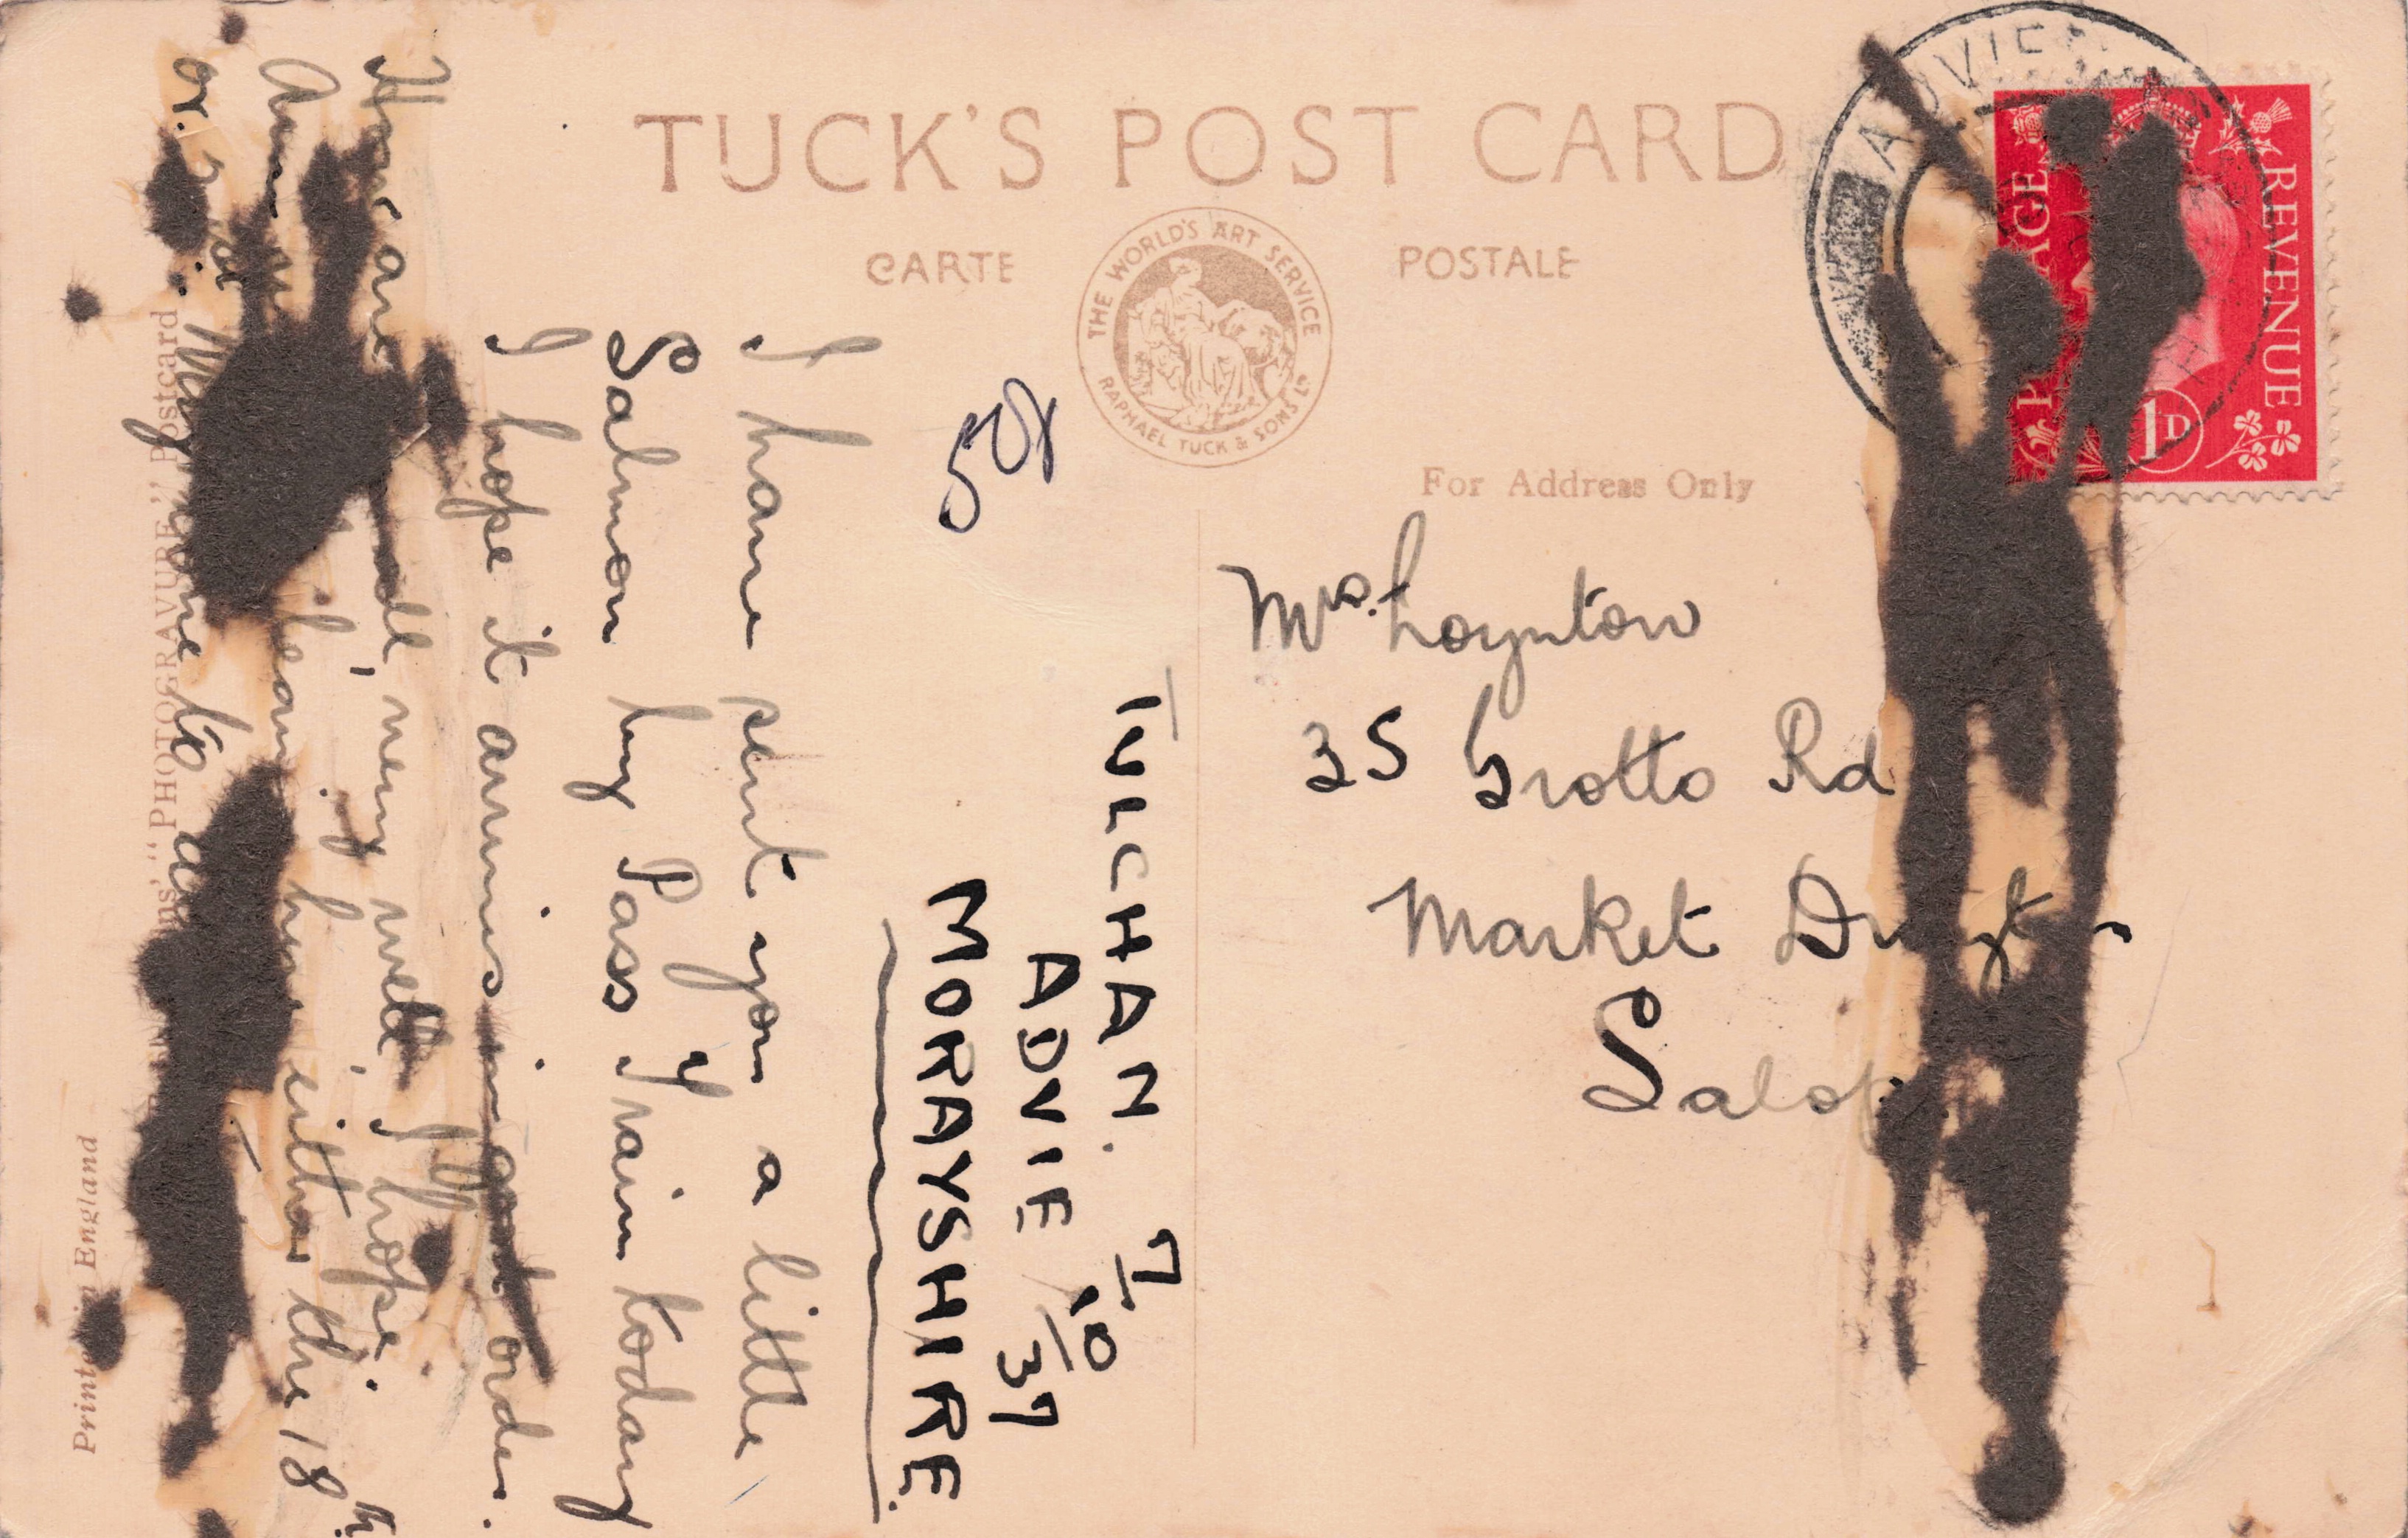 TUCK'S POST CARD
CARTE POSTALE
THE WORLD'S ART SERVICE
RAPHAEL TUCK & SONS LD
For Address Only
POSTAGE
REVENUE
1D
ADVIE
50x
Mrs. Loynton
35 Grotto Rd
Market
Salop
TULCHAN. 7/10/37
ADVIE
MORAYSHIRE.
I have sent you a little
Salmon by Pass Train today
I hope it arrives in good order.
are all, very well, I hope.
leaving here either the 18th
or
to
"PHOTOGRAVURE" Postcard
Printed in England